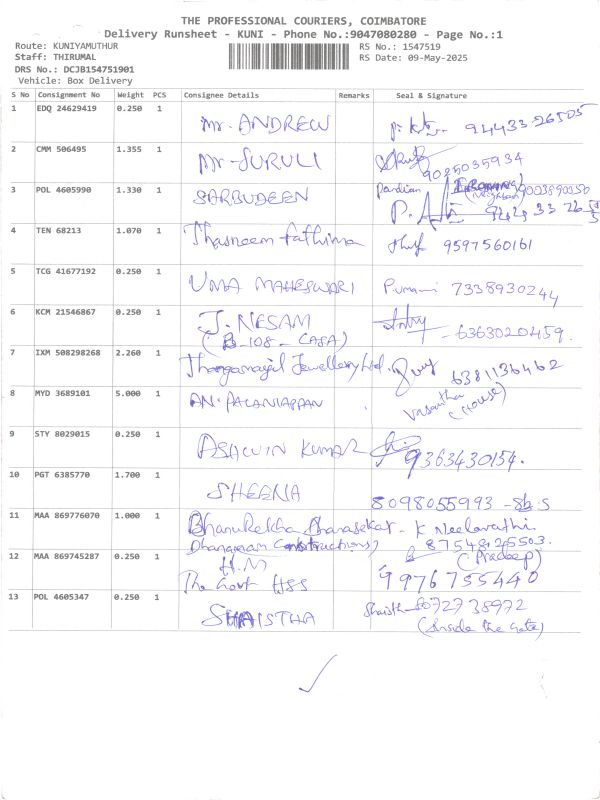 THE PROFESSIONAL COURIERS, COIMBATORE
Delivery Runsheet - KUNI - Phone No.:9047080280 - Page No.:1
Route: KUNIYAMUTHUR RS No.: 1547519
Staff: THIRUMAL RS Date: 09-May-2025
DRS No.: DCJB154751901
Vehicle: Box Delivery
S No Consignment No Weight PCS Consignee Details Remarks Seal & Signature
1 EDQ 24629419 0.250 1 Mr. ANDREW 94433 26505
2 CMM 506495 1.355 1 Mr. SURULI 9025035934
3 POL 4605990 1.330 1 SARBUDEEN Pandian
4 TEN 68213 1.070 1 Thasneem fathima 9597560161
5 TCG 41677192 0.250 1 UMA MAHESWARI 7338930244
6 KCM 21546867 0.250 1 J. NESAM 6363020459.
(B-108- CASA)
7 IXM 508298268 2.260 1 Thangamayil Jewellery Ltd. 6381136462
8 MYD 3689101 5.000 1 AN. PALANIAPPAN Vasantha
(HOUSE)
9 STY 8029015 0.250 1 ASHWIN KUMAR 9363430154.
10 PGT 6385770 1.700 1 SHEENA 8098055993
11 MAA 869776070 1.000 1 - K Neelavathi
(Constructions) 8754825503.
12 MAA 869745287 0.250 1 H.M (Pradeep)
The Govt HSS 9976755440
13 POL 4605347 0.250 1 SHAISTHA Shaistha 8672738972
(Inside the Gate)